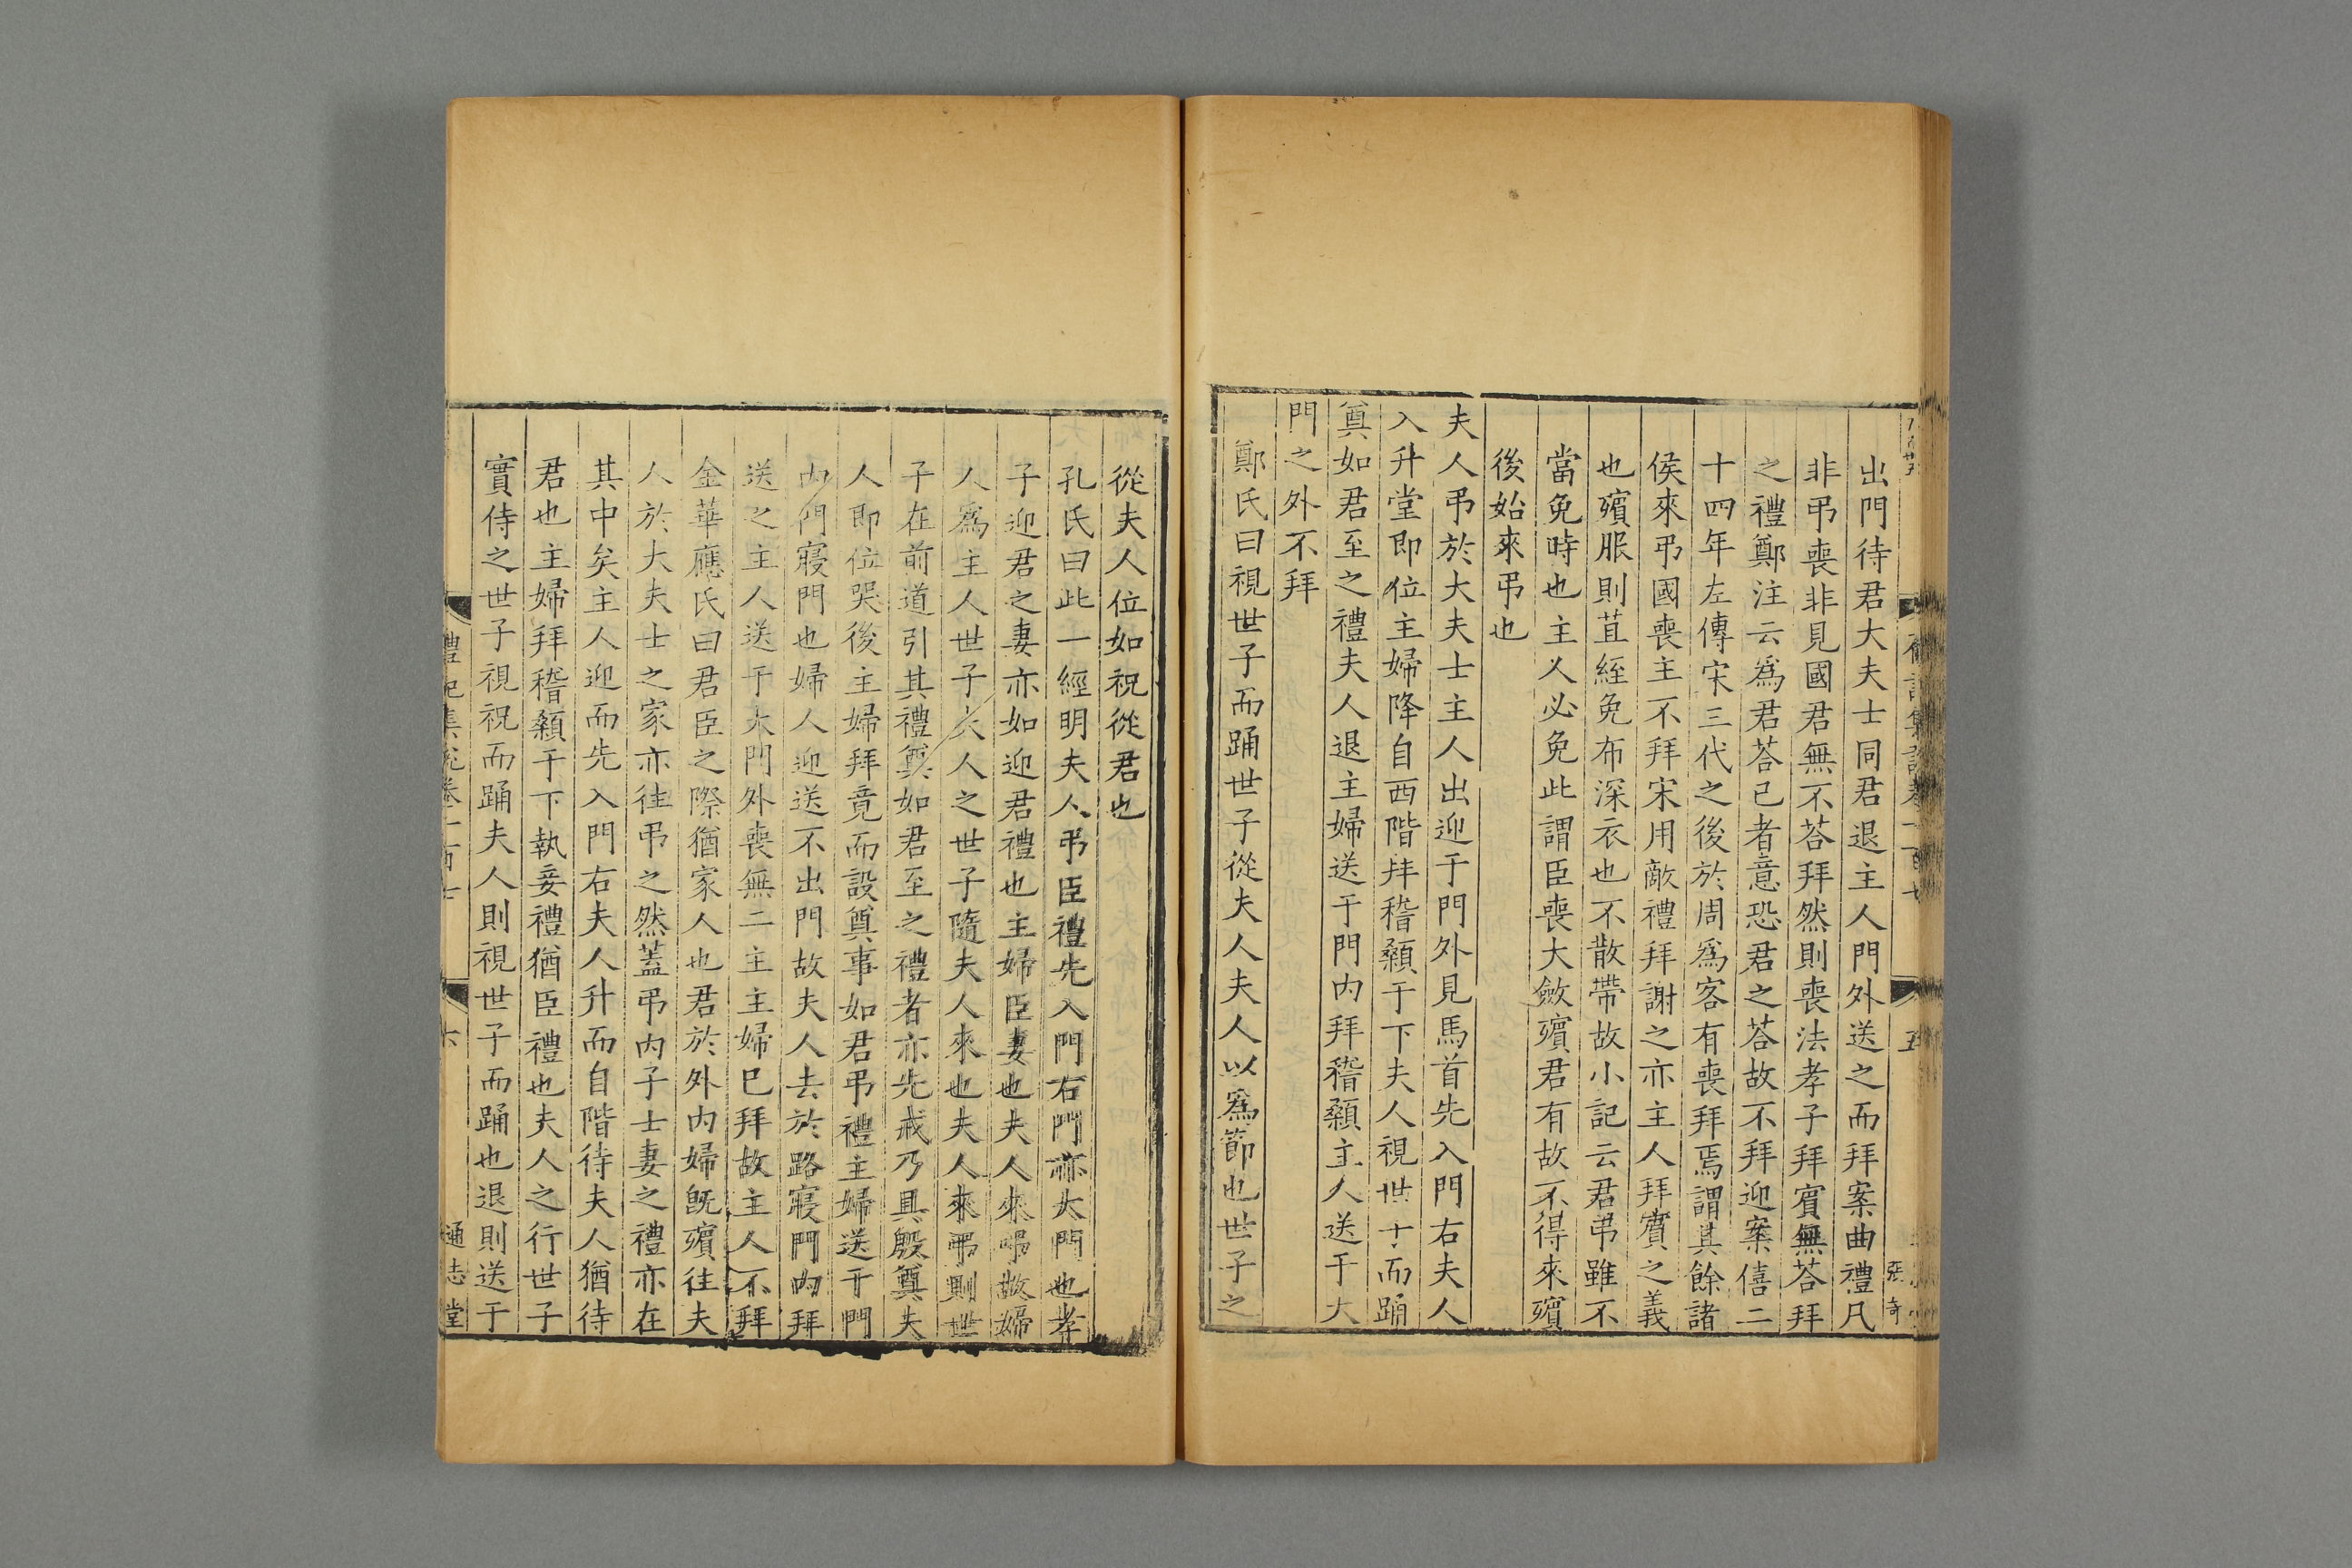 出門待君大夫士同君退主人門外送之而拜案曲禮凡
非弔喪非見國君無不荅拜然則喪法孝子拜賓無荅拜
之禮鄭注云爲君荅已者意恐君之荅故不拜迎案僖二
十四年左傳宋三代之後於周爲客有喪拜焉謂其餘諸
侯來弔國喪主不拜宋用敵禮拜謝之亦主人拜賓之義
也殯服則苴絰免布深衣也不散帶故小記云君弔雖不
當免時也主人必免此謂臣喪大斂殯君有故不得來殯
後始來弔也
夫人弔於大夫士主人出迎于門外見馬首先入門右夫人
入升堂即位主婦降自西階拜稽顙于下夫人視世子而踊
奠如君至之禮夫人退主婦送于門内拜稽顙主人送于大
門之外不拜
鄭氏曰視世子而踊世子從夫人夫人以爲節也世子之
五
張奇
從夫人位如祝從君也
孔氏曰此一經明夫人弔臣禮先入門右門亦大門也孝
子迎君之妻亦如迎君禮也主婦臣妻也夫人來弔故婦
人爲主人世子夫人之世子隨夫人來也夫人來弔則世
子在前道引其禮奠如君至之禮者亦先戒乃具殷奠夫
人即位哭後主婦拜竟而設奠事如君弔禮主婦送于門
内門寢門也婦人迎送不出門故夫人去於路寢門内拜
送之主人送于大門外喪無二主主婦巳拜故主人不拜
金華應氏曰君臣之際猶家人也君於外内婦旣殯往夫
人於大夫士之家亦往弔之然蓋弔内子士妻之禮亦在
其中矣主人迎而先入門右夫人升而自階待夫人猶待
君也主婦拜稽顙于下執妾禮猶臣禮也夫人之行世子
實侍之世子視祝而踊夫人則視世子而踊也退則送于
禮記集説卷一百七
六
通志堂